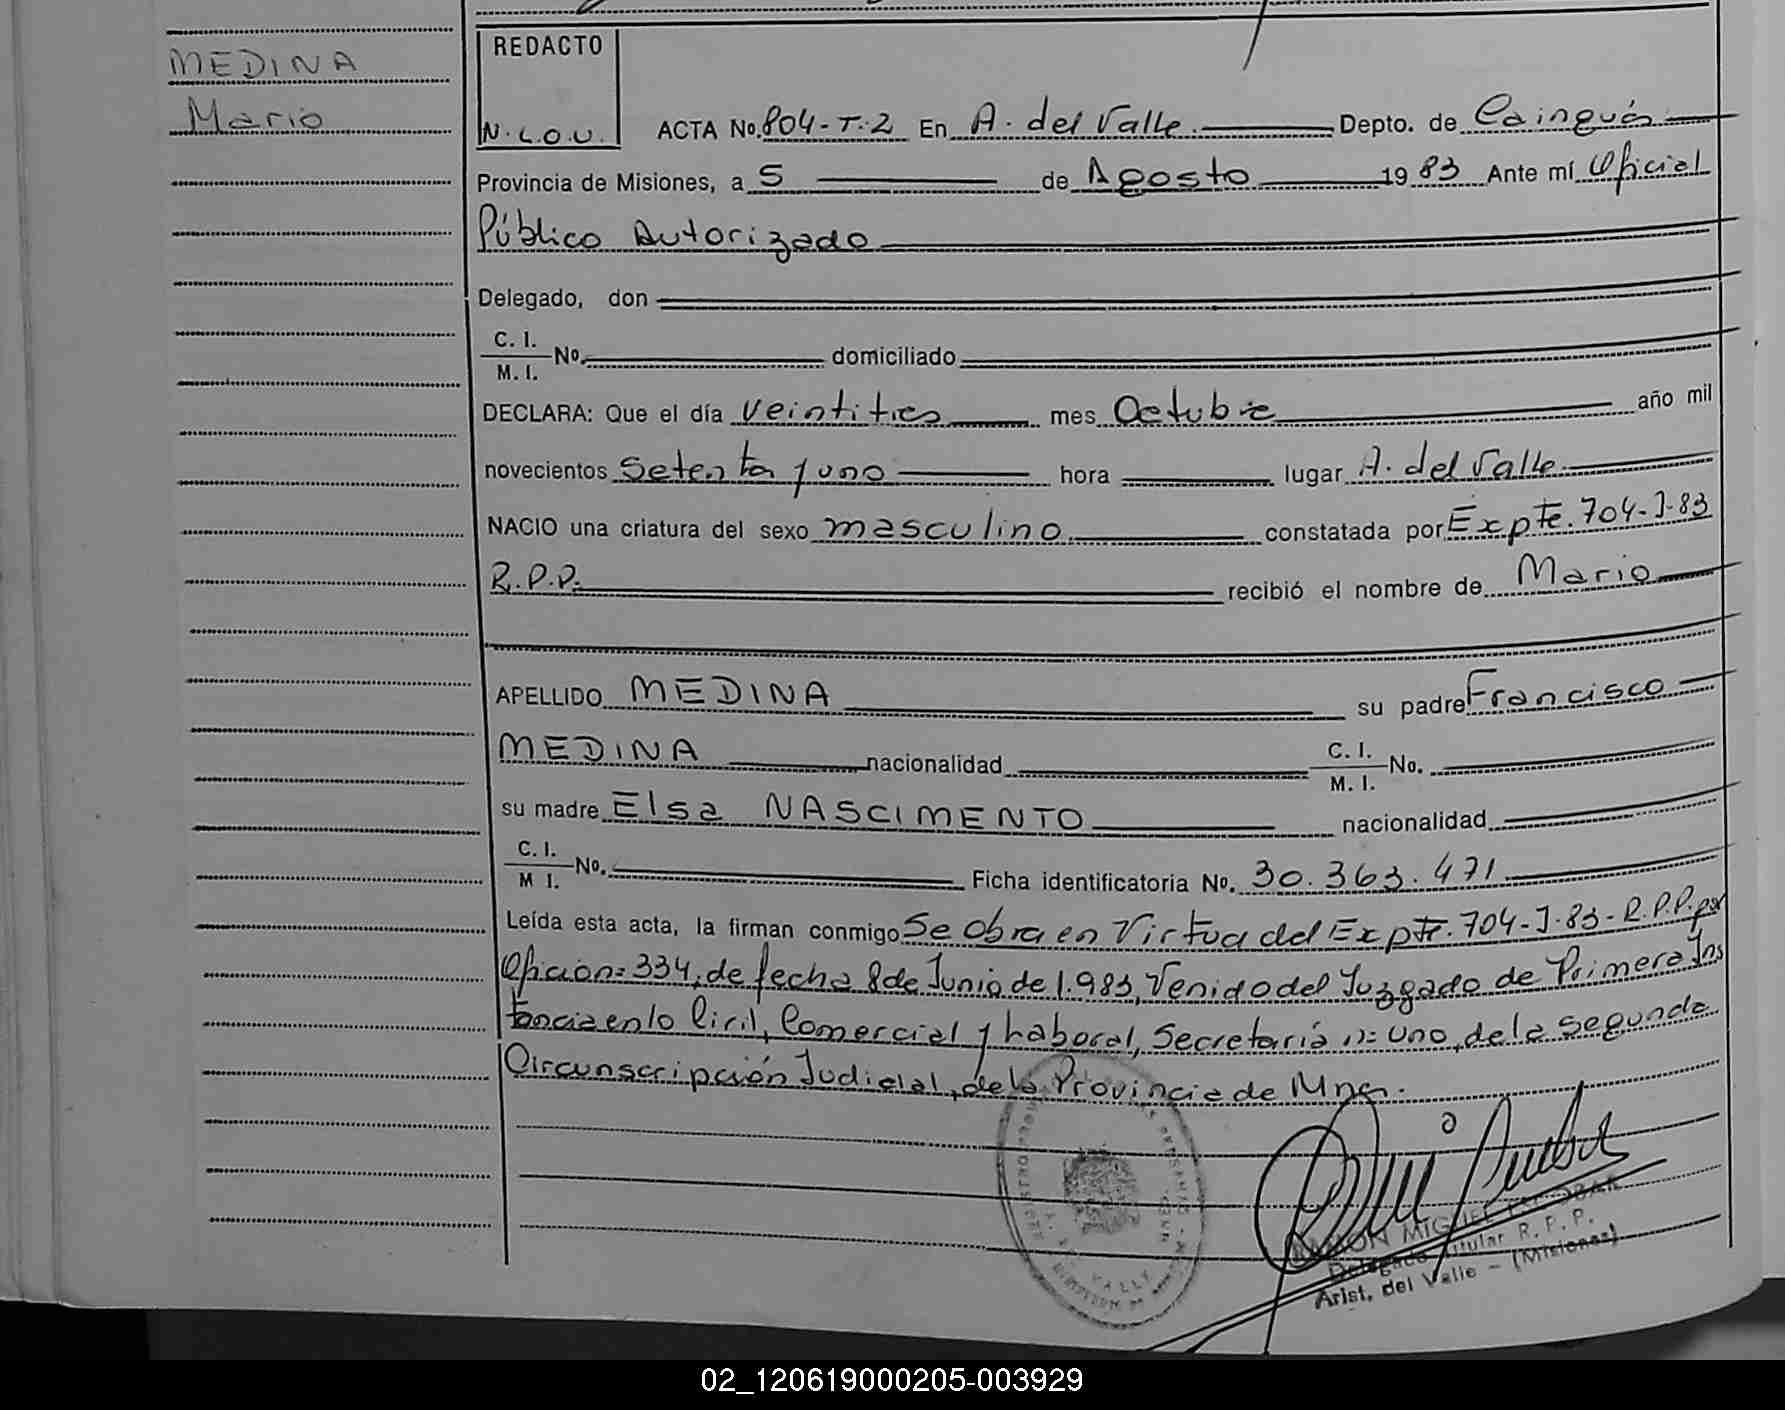 MEDINA
Mario
REDACTO
N.L.O.U.
ACTA No. 804-T-2 En A. del Valle Depto. de Cainguás
Provincia de Misiones, a 5 de Agosto 1983 Ante mí Oficial
Público Autorizado
Delegado, don
C. I.
M. I. No. domiciliado
DECLARA: Que el día veintitres mes Octubre año mil
novecientos setenta y uno hora lugar A. del Valle
NACIO una criatura del sexo masculino constatada por Expte. 704-J-83
R.P.P. recibió el nombre de Mario
APELLIDO MEDINA su padre Francisco
MEDINA nacionalidad C. I. M. I. No.
su madre Elsa NASCIMENTO nacionalidad
C. I. M I. No. Ficha identificatoria No. 30.363.471
Leída esta acta, la firman conmigo Se obra en Virtud del Expte. 704-J-83-R.P.P. por
Oficio n= 334, de fecha 8 de Junio de 1.983, Venido del Juzgado de Primera Ins
tancia en lo Civil, Comercial y Laboral, Secretaría n= uno, de la segunda
Circunscripción Judicial, de la Provincia de Mnes.
RAMON MIGUEL ESCOBAR
Delegado Titular R. P. P.
Arist. del Valle - (Misiones)
02_120619000205-003929